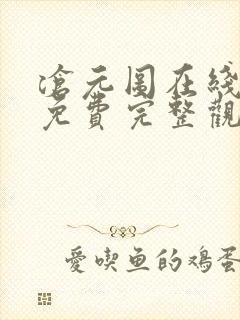 滄元图在綫
免費完整觀
愛喫鱼的鸡蛋